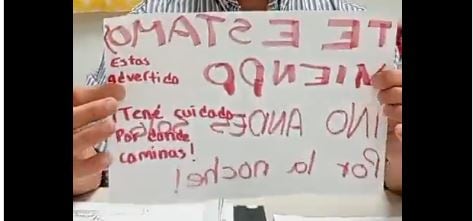 ¡TE ESTAMOS
VIENDO
¡NO ANDES
Por la noche!
Estas
advertido
¡Tené cuidado
Por donde
caminas!